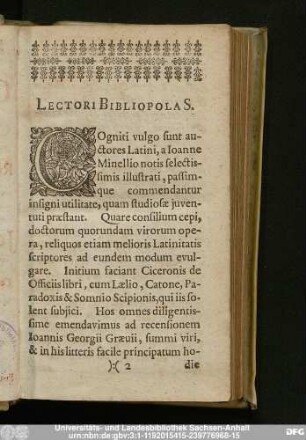 LECTORI BIBLIOPOLA S.
COgniti vulgo sunt au-
ctores Latini, a Ioanne
Minellio notis selectis-
simis illustrati, passim-
que commendantur
insigni utilitate, quam studiosæ juven-
tuti præstant. Quare consilium cepi,
doctorum quorundam virorum ope-
ra, reliquos etiam melioris Latinitatis
scriptores ad eundem modum evul-
gare. Initium faciant Ciceronis de
Officiis libri, cum Lælio, Catone, Pa-
radoxis & Somnio Scipionis, qui iis so-
lent subjici. Hos omnes diligentis-
sime emendavimus ad recensionem
Ioannis Georgii Grævii, summi viri,
& in his litteris facile principatum ho-
):( 2 die
Universitäts- und Landesbibliothek Sachsen-Anhalt
urn:nbn:de:gbv:3:1-1192015415-239776960-15
DFG